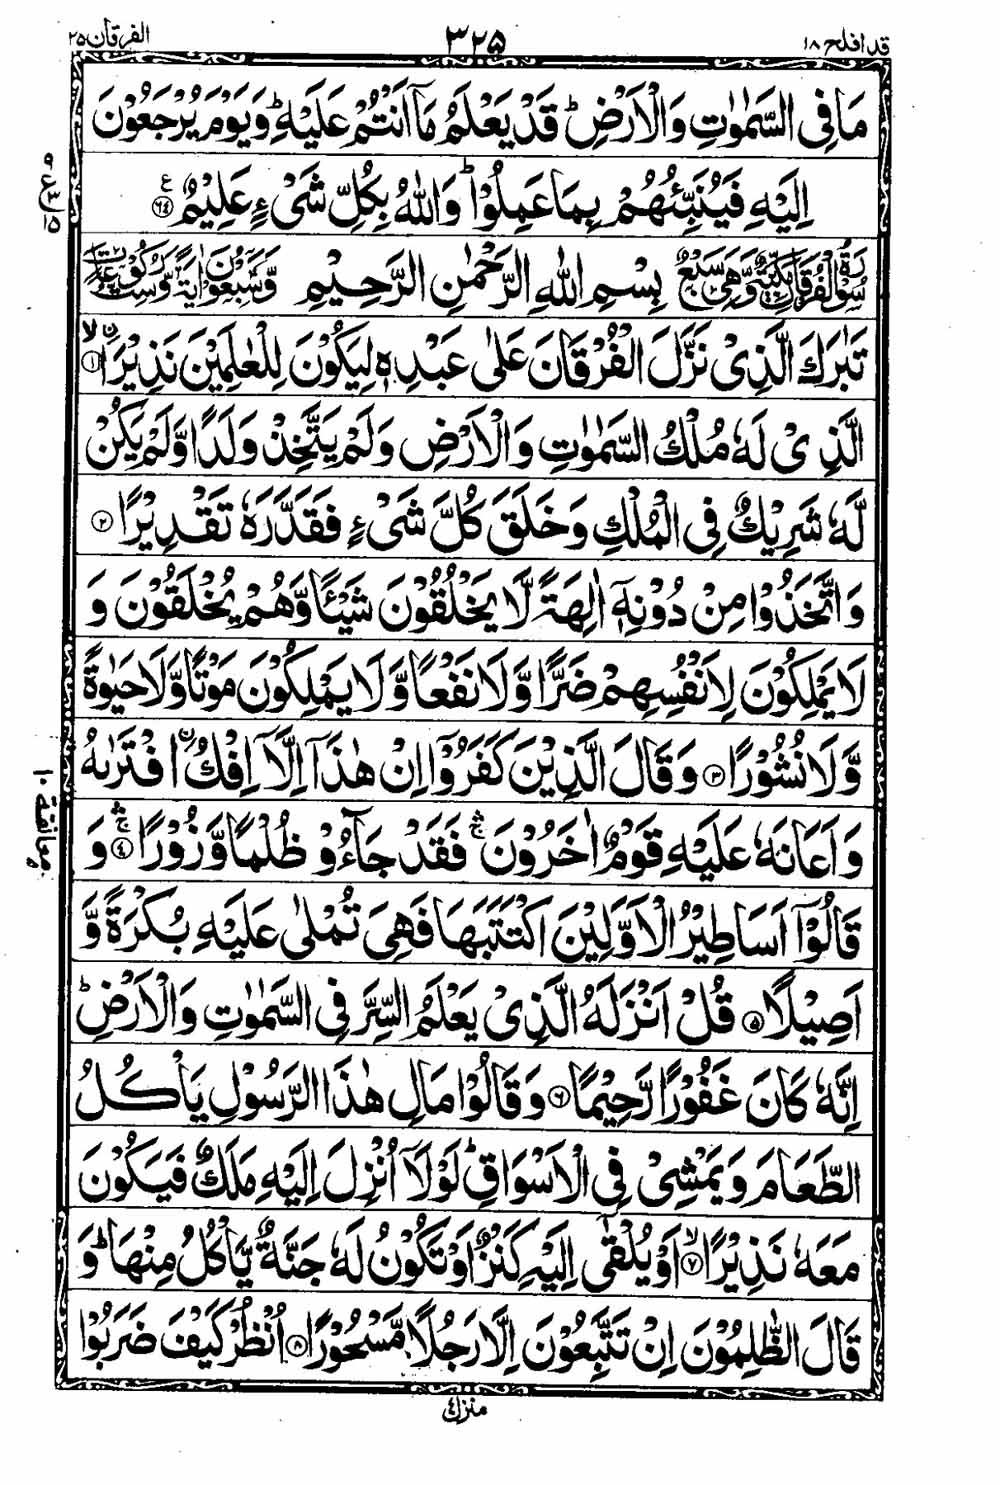 قد افلح ١٨
٣٢٥
الفرقان ٢٥
مَا فِی السَّمٰوٰتِ وَالْاَرْضِ ؕ قَدْ یَعْلَمُ مَاۤ اَنْتُمْ عَلَیْهِ ؕ وَیَوْمَ یُرْجَعُوْنَ
اِلَیْهِ فَیُنَبِّئُهُمْ بِمَا عَمِلُوْا ؕ وَاللّٰهُ بِكُلِّ شَیْءٍ عَلِیْمٌ ﴿٦٤﴾ ع
سُوْرَةُ الْفُرْقَانِ مَكِّیَّةٌ وَّهِیَ سَبْعٌ بِسْمِ اللّٰهِ الرَّحْمٰنِ الرَّحِیْمِ وَّسَبْعُوْنَ اٰیَةً وَّسِتُّ رُكُوْعَاتٍ
تَبٰرَكَ الَّذِیْ نَزَّلَ الْفُرْقَانَ عَلٰی عَبْدِهٖ لِیَكُوْنَ لِلْعٰلَمِیْنَ نَذِیْرًا ﴿١﴾ ۙ
الَّذِیْ لَهٗ مُلْكُ السَّمٰوٰتِ وَالْاَرْضِ وَلَمْ یَتَّخِذْ وَلَدًا وَّلَمْ یَكُنْ
لَّهٗ شَرِیْكٌ فِی الْمُلْكِ وَخَلَقَ كُلَّ شَیْءٍ فَقَدَّرَهٗ تَقْدِیْرًا ﴿٢﴾
وَاتَّخَذُوْا مِنْ دُوْنِهٖۤ اٰلِهَةً لَّا یَخْلُقُوْنَ شَیْئًا وَّهُمْ یُخْلَقُوْنَ وَ
لَا یَمْلِكُوْنَ لِاَنْفُسِهِمْ ضَرًّا وَّلَا نَفْعًا وَّلَا یَمْلِكُوْنَ مَوْتًا وَّلَا حَیٰوةً
وَّلَا نُشُوْرًا ﴿٣﴾ وَقَالَ الَّذِیْنَ كَفَرُوْۤا اِنْ هٰذَاۤ اِلَّاۤ اِفْكُ اۨفْتَرٰىهُ
وَاَعَانَهٗ عَلَیْهِ قَوْمٌ اٰخَرُوْنَ ۛۚ فَقَدْ جَآءُوْ ظُلْمًا وَّزُوْرًا ﴿٤﴾ ۛۚ وَ
قَالُوْۤا اَسَاطِیْرُ الْاَوَّلِیْنَ اكْتَتَبَهَا فَهِیَ تُمْلٰی عَلَیْهِ بُكْرَةً وَّ
اَصِیْلًا ﴿٥﴾ قُلْ اَنْزَلَهُ الَّذِیْ یَعْلَمُ السِّرَّ فِی السَّمٰوٰتِ وَالْاَرْضِ ؕ
اِنَّهٗ كَانَ غَفُوْرًا رَّحِیْمًا ﴿٦﴾ وَقَالُوْا مَالِ هٰذَا الرَّسُوْلِ یَاْكُلُ
الطَّعَامَ وَیَمْشِیْ فِی الْاَسْوَاقِ ؕ لَوْلَاۤ اُنْزِلَ اِلَیْهِ مَلَكٌ فَیَكُوْنَ
مَعَهٗ نَذِیْرًا ﴿٧﴾ ۙ اَوْ یُلْقٰۤی اِلَیْهِ كَنْزٌ اَوْ تَكُوْنُ لَهٗ جَنَّةٌ یَّاْكُلُ مِنْهَا ؕ وَ
قَالَ الظّٰلِمُوْنَ اِنْ تَتَّبِعُوْنَ اِلَّا رَجُلًا مَّسْحُوْرًا ﴿٨﴾ اُنْظُرْ كَیْفَ ضَرَبُوْا
منزل ٤
٩ ع ١٥
معانقة ١٠